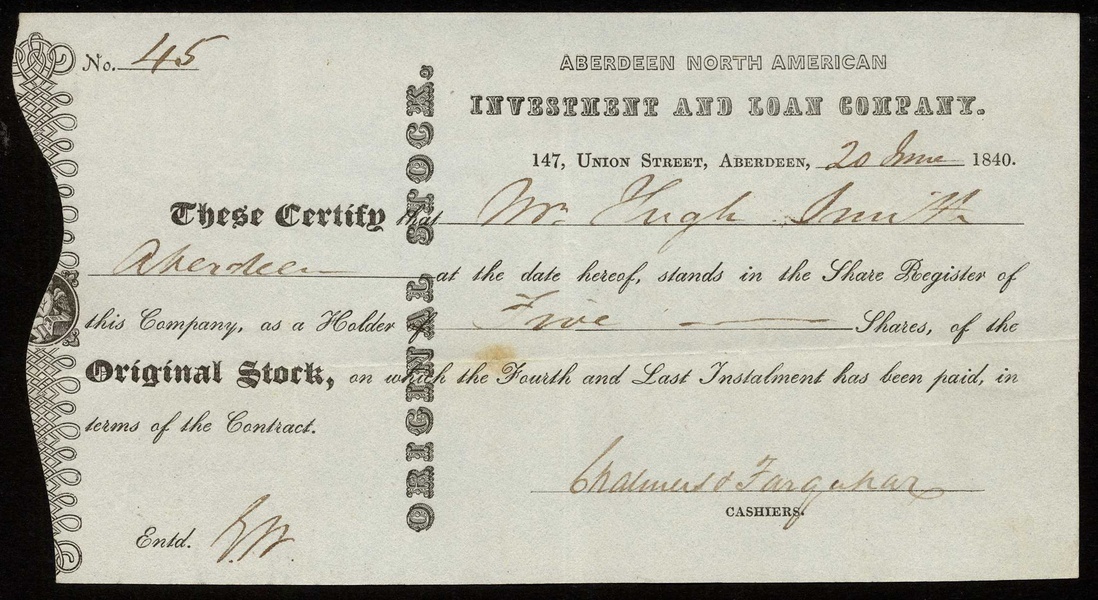 No. 45
ABERDEEN NORTH AMERICAN
INVESTMENT AND LOAN COMPANY.
147, UNION STREET, ABERDEEN, 20 June 1840.
These Certify that Mr. Hugh Smith
Aberdeen at the date hereof, stands in the Share Register of
this Company, as a Holder of Five Shares, of the
Original Stock, on which the Fourth and Last Instalment has been paid, in
terms of the Contract.
Chalmers & Farquhar
CASHIERS.
Entd.
ORIGINAL STOCK.